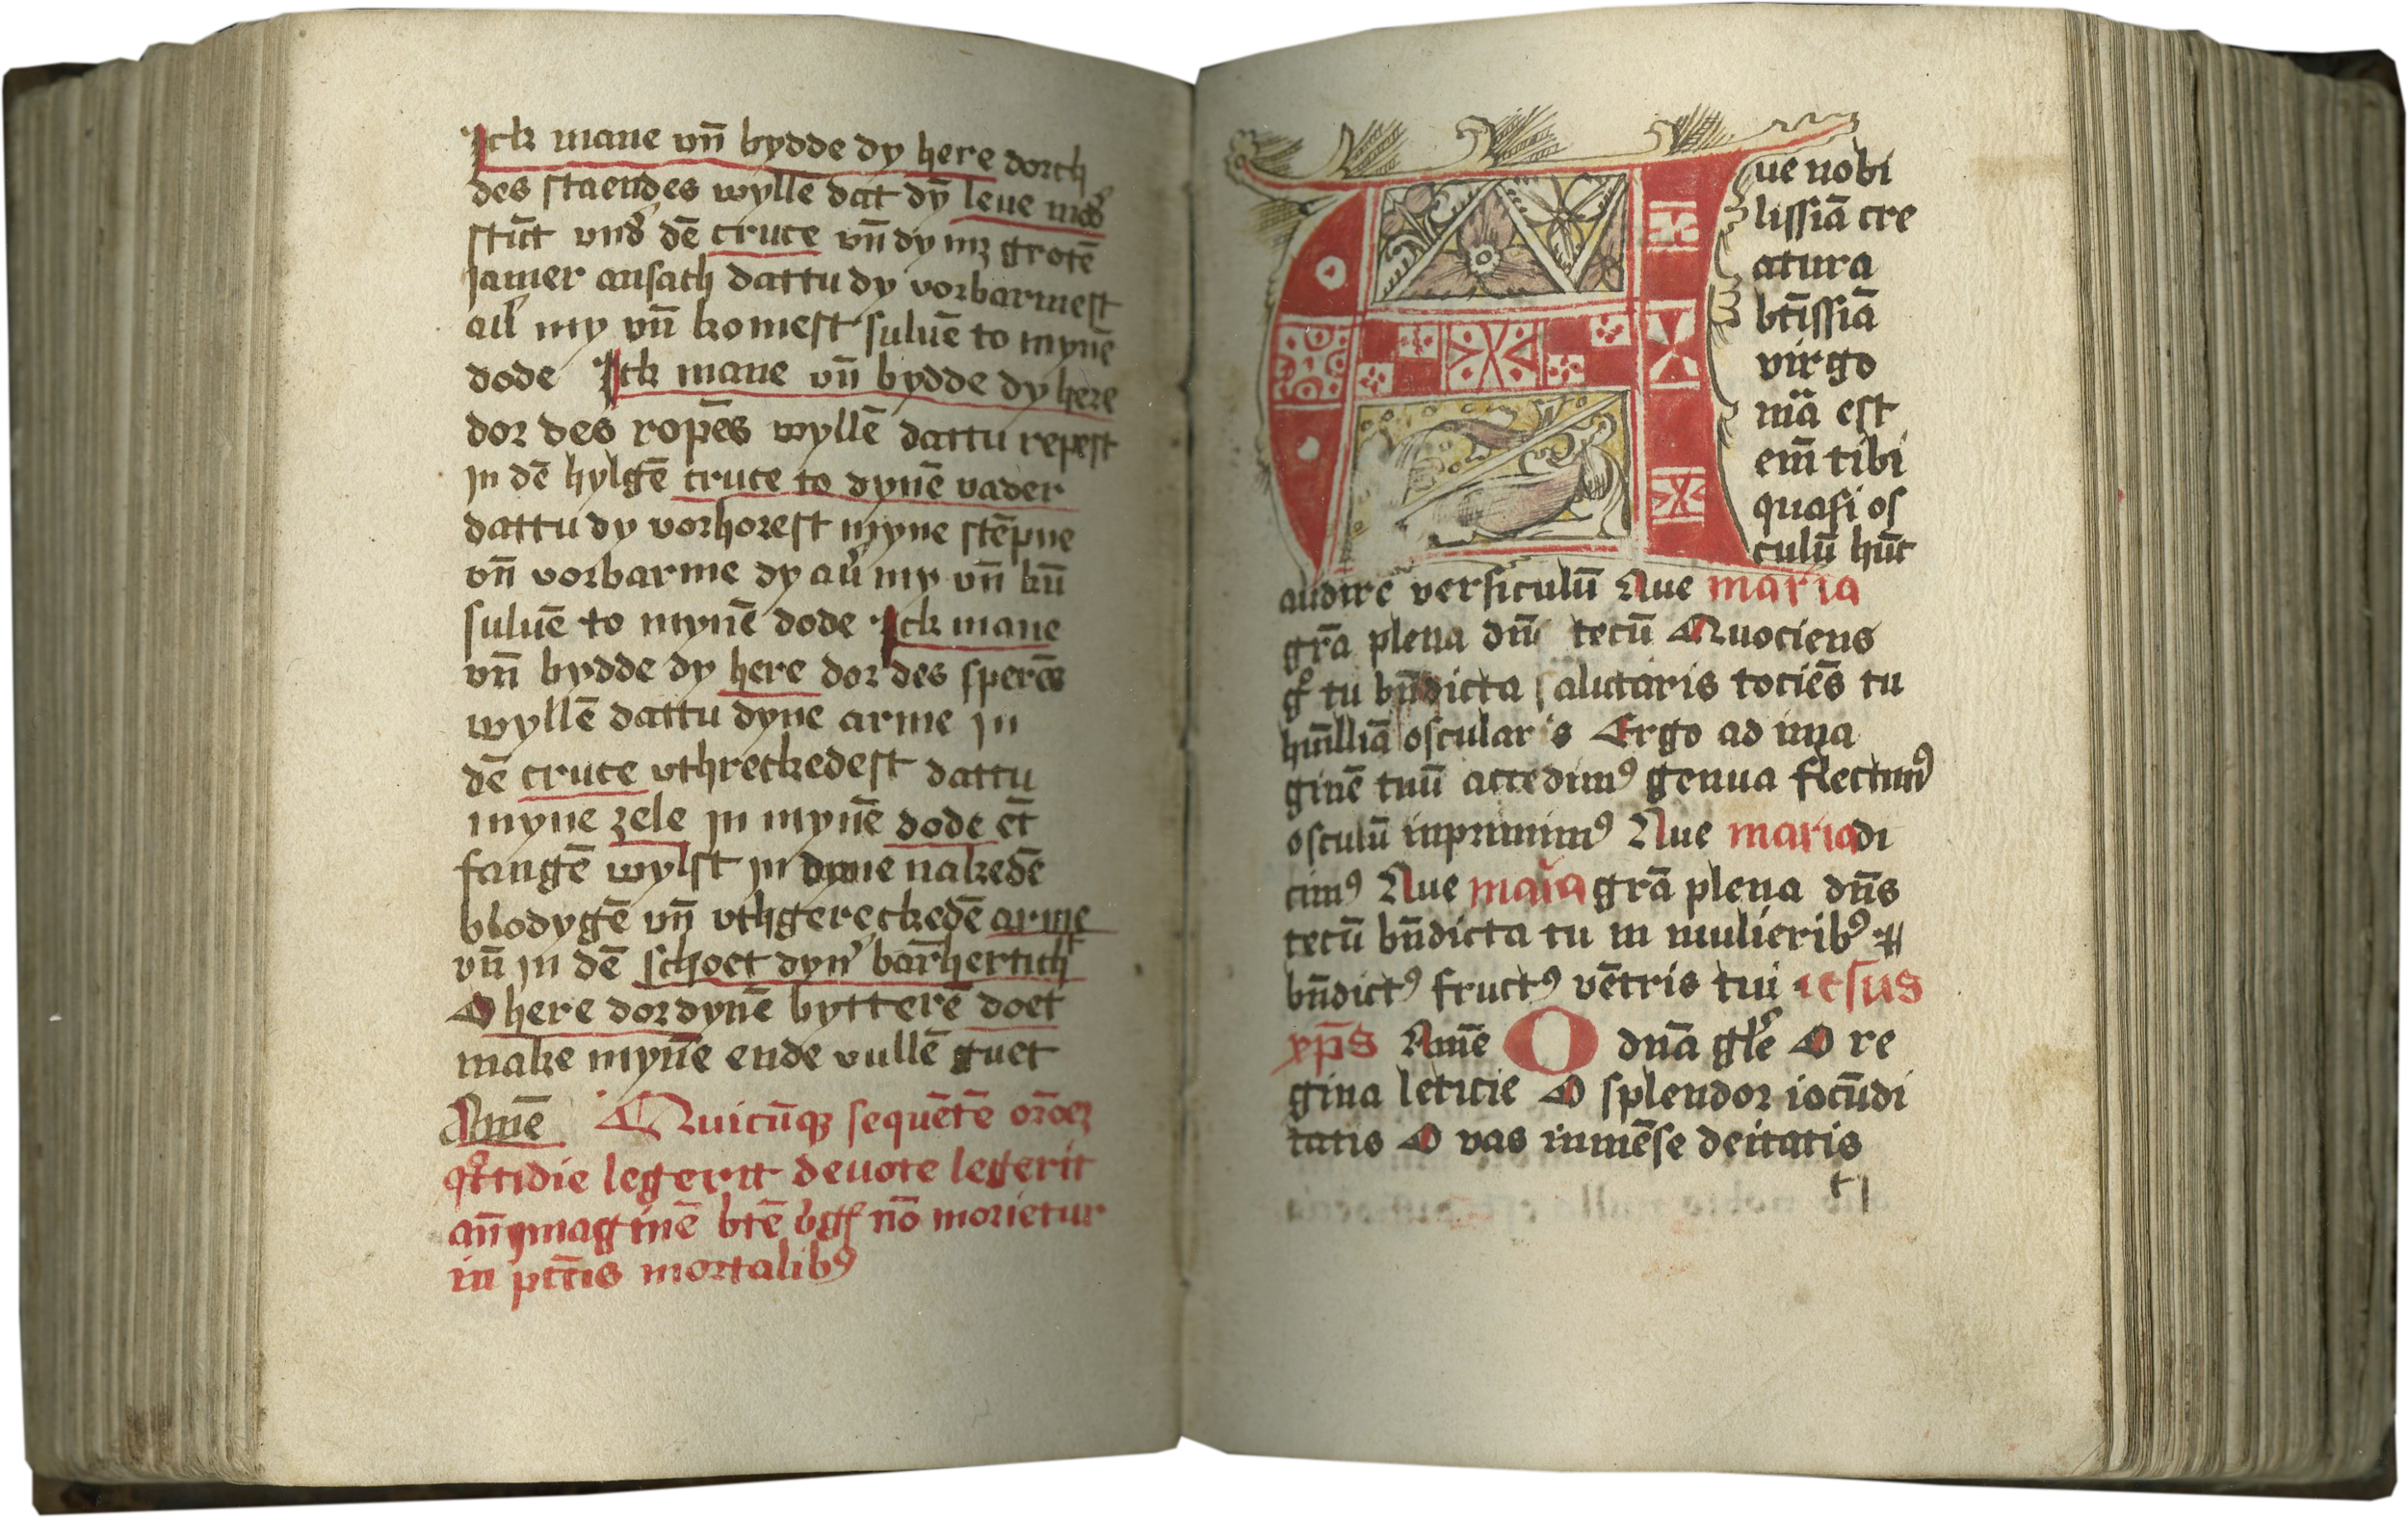 Ick mane vn̄ bydde dy here dorch
des staendes wylle dat dȳ leue
stūt vnđ dē cruce vn̄ dy mʒ grotē
jamer ansach dattu dy vorbarmest
my vn̄ komest suluē to mynē
dode Ick mane vn̄ bydde dy here
dor des ropēs wyllē dattu repest
jn dē hylgē cruce to dynē vader
dattu dy vorhorest myne stēpne
vn̄ vorbarme dy au̕ my vn̄ kū
suluē to mynē dode Ick mane
vn̄ bydde dy here dor des sperēs
wyllē dattu dyne arme jn
dē cruce vthreckedest dattu
myne zele jn mynē dode ēt
fangē wylst jn dyne nakedē
blodygē vn̄ vthgereckedē arme
vn̄ jn dē schoet dyn̕ bar̄herticħ
O here dor dynē bytterē doet
make mynē ende vullē guet
Amē Quicūqꝫ sequētē or̄oeꝫ
qͦttidie legerit deuote legerit
an̄ ymaginē btē vgͥſ nō morietur
in pctīs mortalibꝰ
Aue nobi
lissiā cre
atura
btīssiā
virgo
mīa est
em̄ tibi
quasi os
culū hūc
audire versiculū Aue maria
grā plena dn̄s tecū Quociens
gͦ tu bn̄dicta salutaris tociēs tu
hūlliā oscularis Ergo ad ima
ginē tuū accedimꝰ genua flectimꝰ
osculū inprimimꝰ Aue maria di
cimꝰ Aue maria grā plena dn̄s
tecū bn̄dicta tu in mulieribꝰ ⁊
bn̄dictꝰ fructꝰ vētris tui iesus
xp̄s Amē O dn̄a glͤe O re
gina leticie O splendor iocūdi
tatis O vas inmēse deitatis